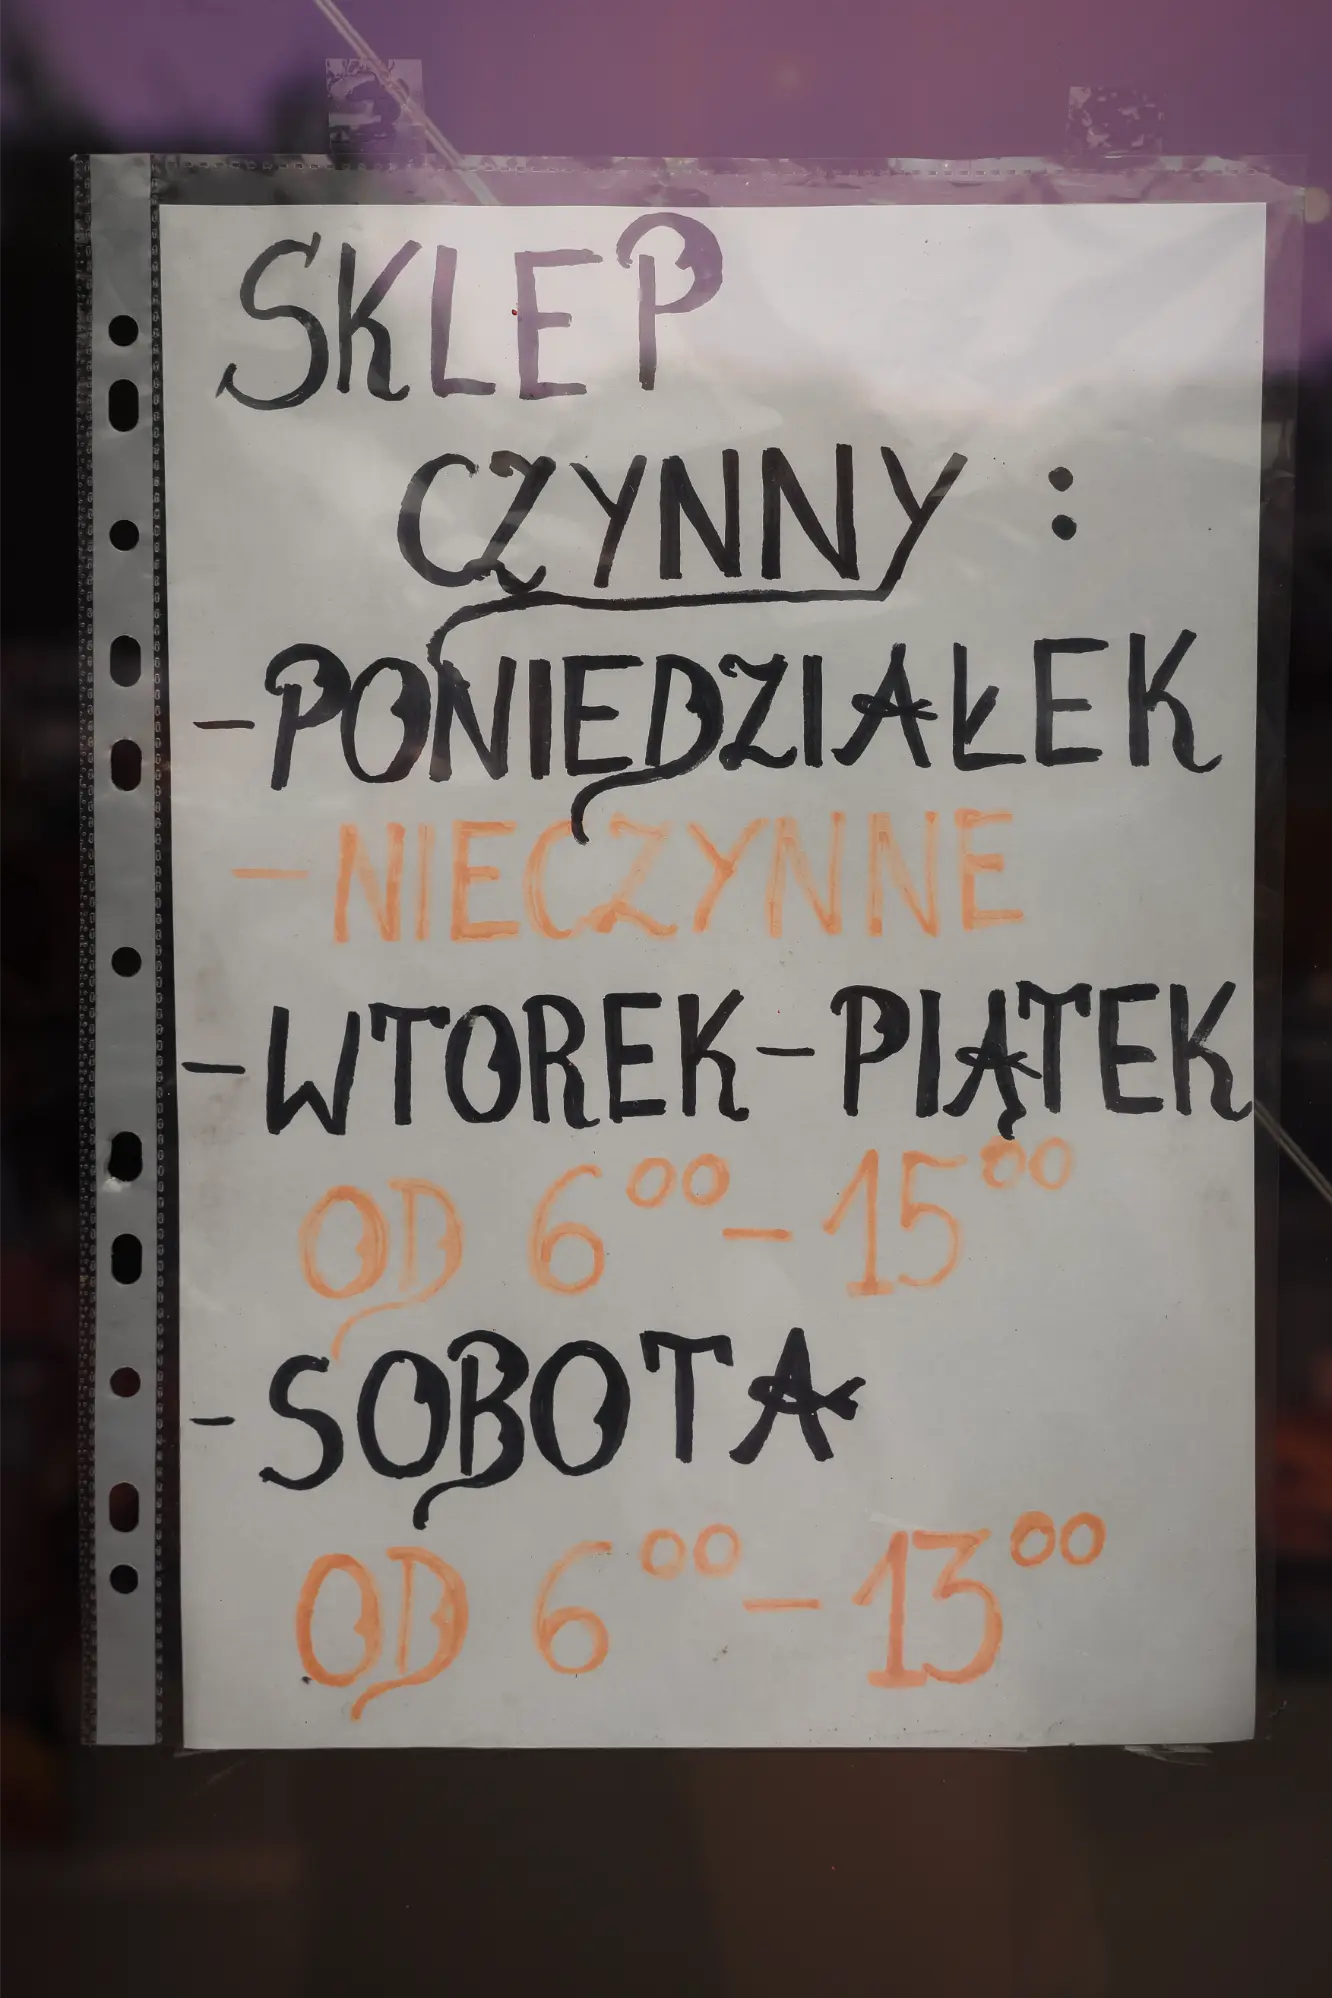 SKLEP
CZYNNY :
-PONIEDZIAŁEK
-NIECZYNNE
-WTOREK-PIĄTEK
OD 6⁰⁰-15⁰⁰
-SOBOTA
OD 6⁰⁰-13⁰⁰